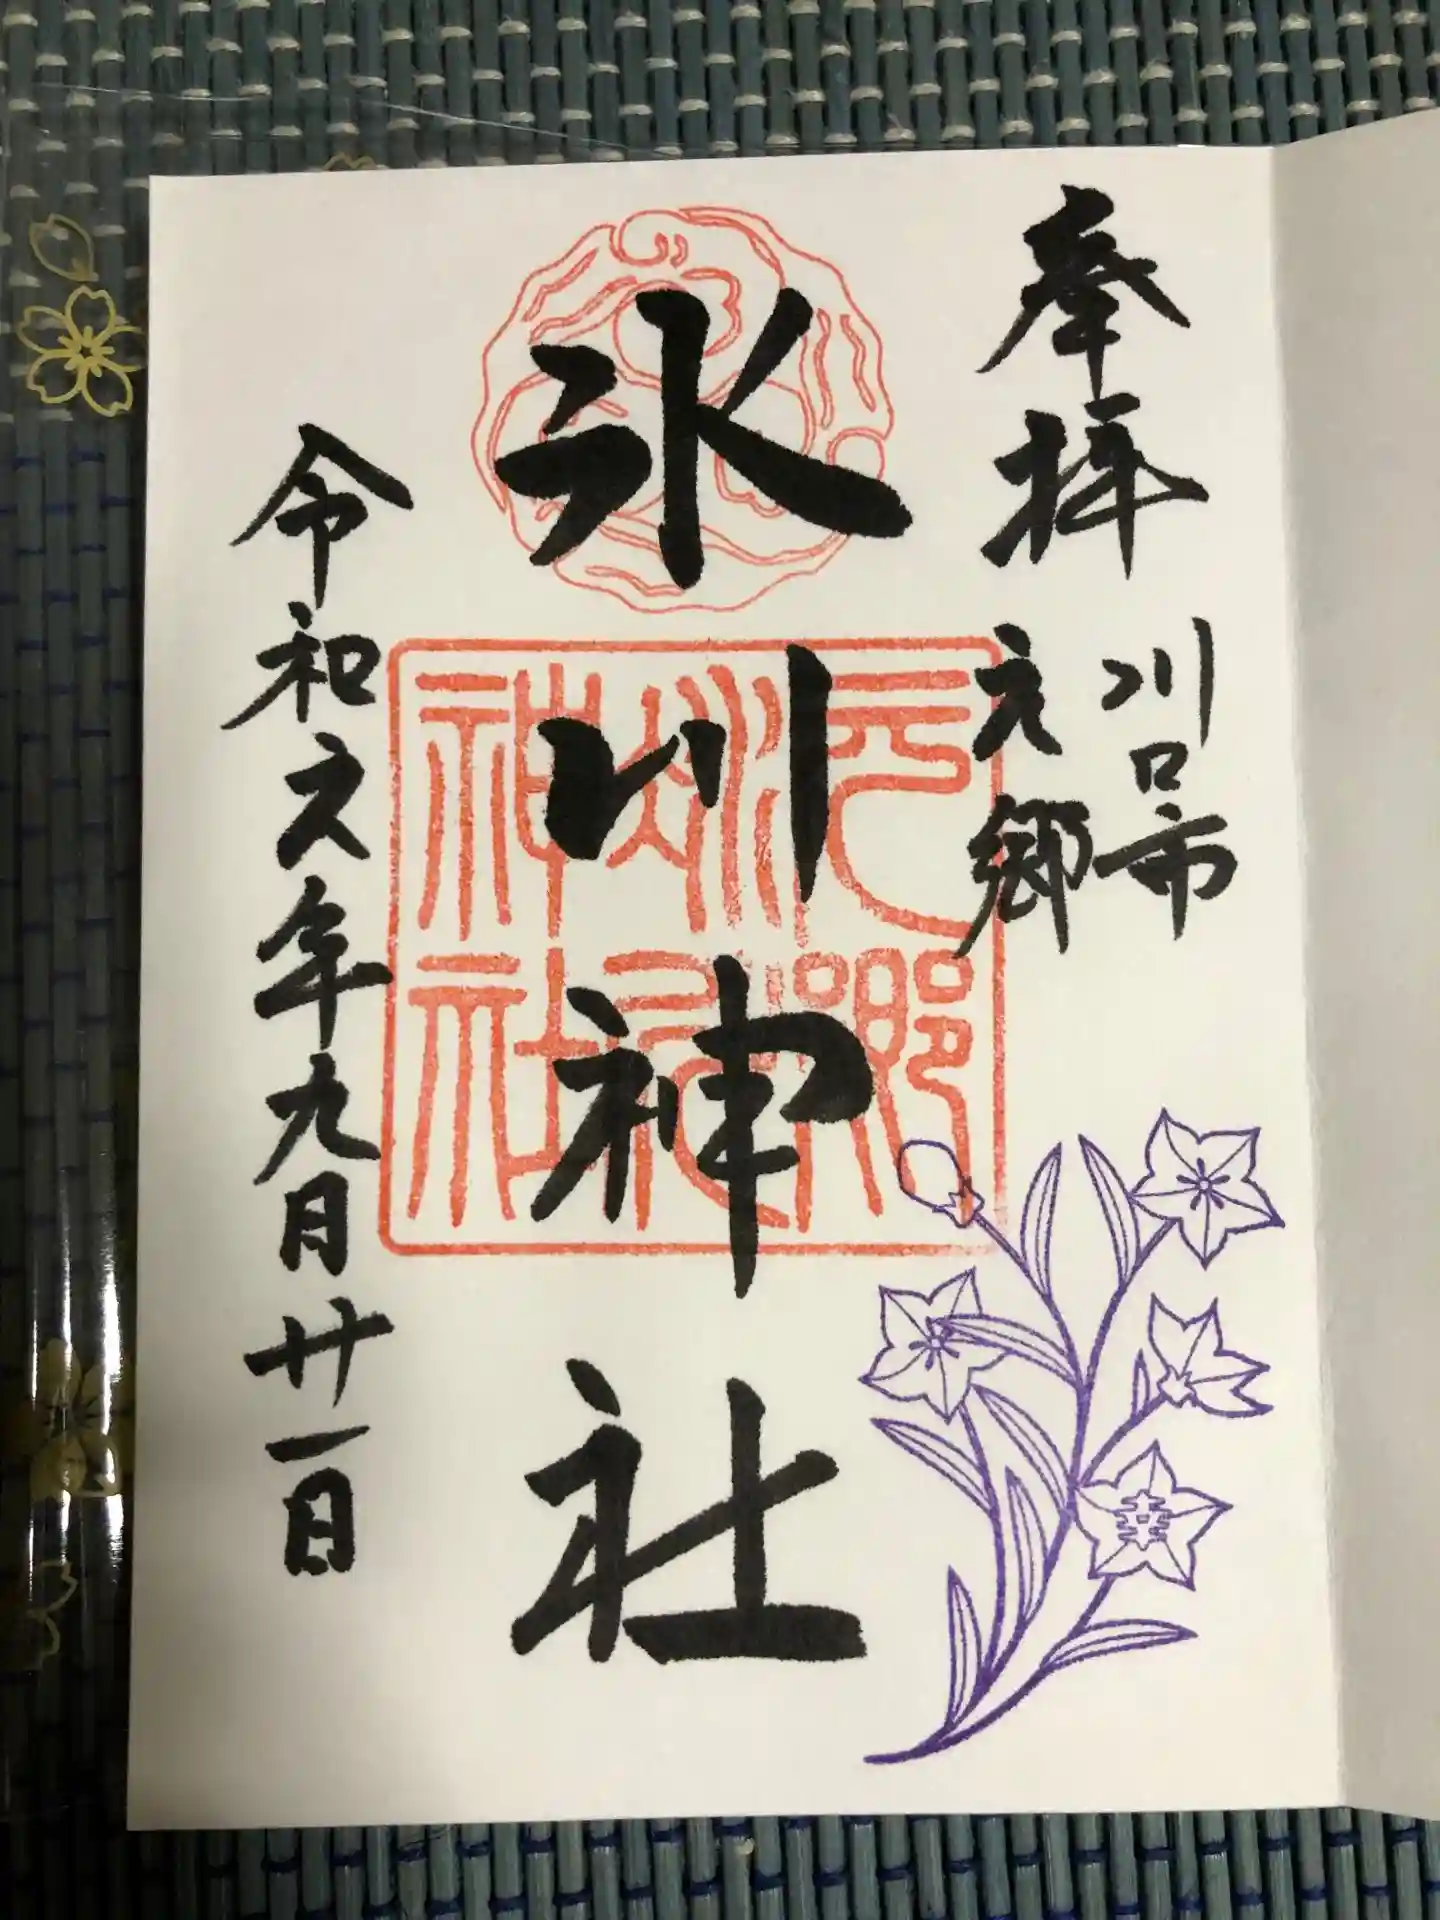 奉拝
川口市
元郷
氷川神社
令和元年九月廿一日
元郷
神社
幸